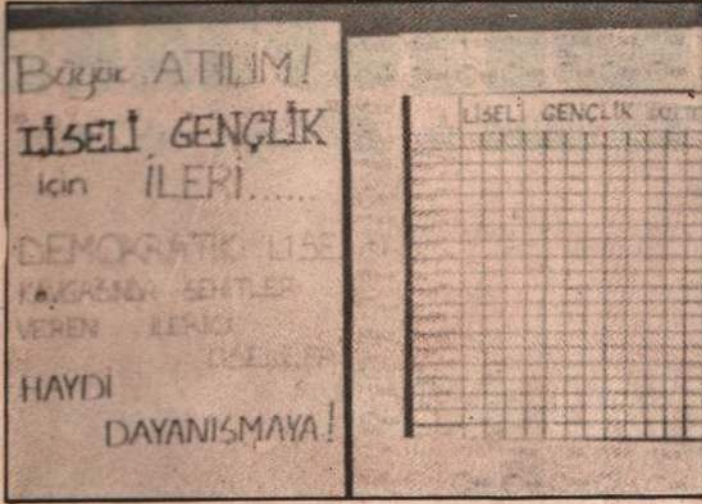 Büyük ATILIM!
LİSELİ GENÇLİK
için İLERİ......
DEMOKRATİK LİSE
KAVGASINDA ŞEHİTLER
VEREN İLERİCİ
LİSELİLER
HAYDİ
DAYANIŞMAYA!
LİSELİ GENÇLİK